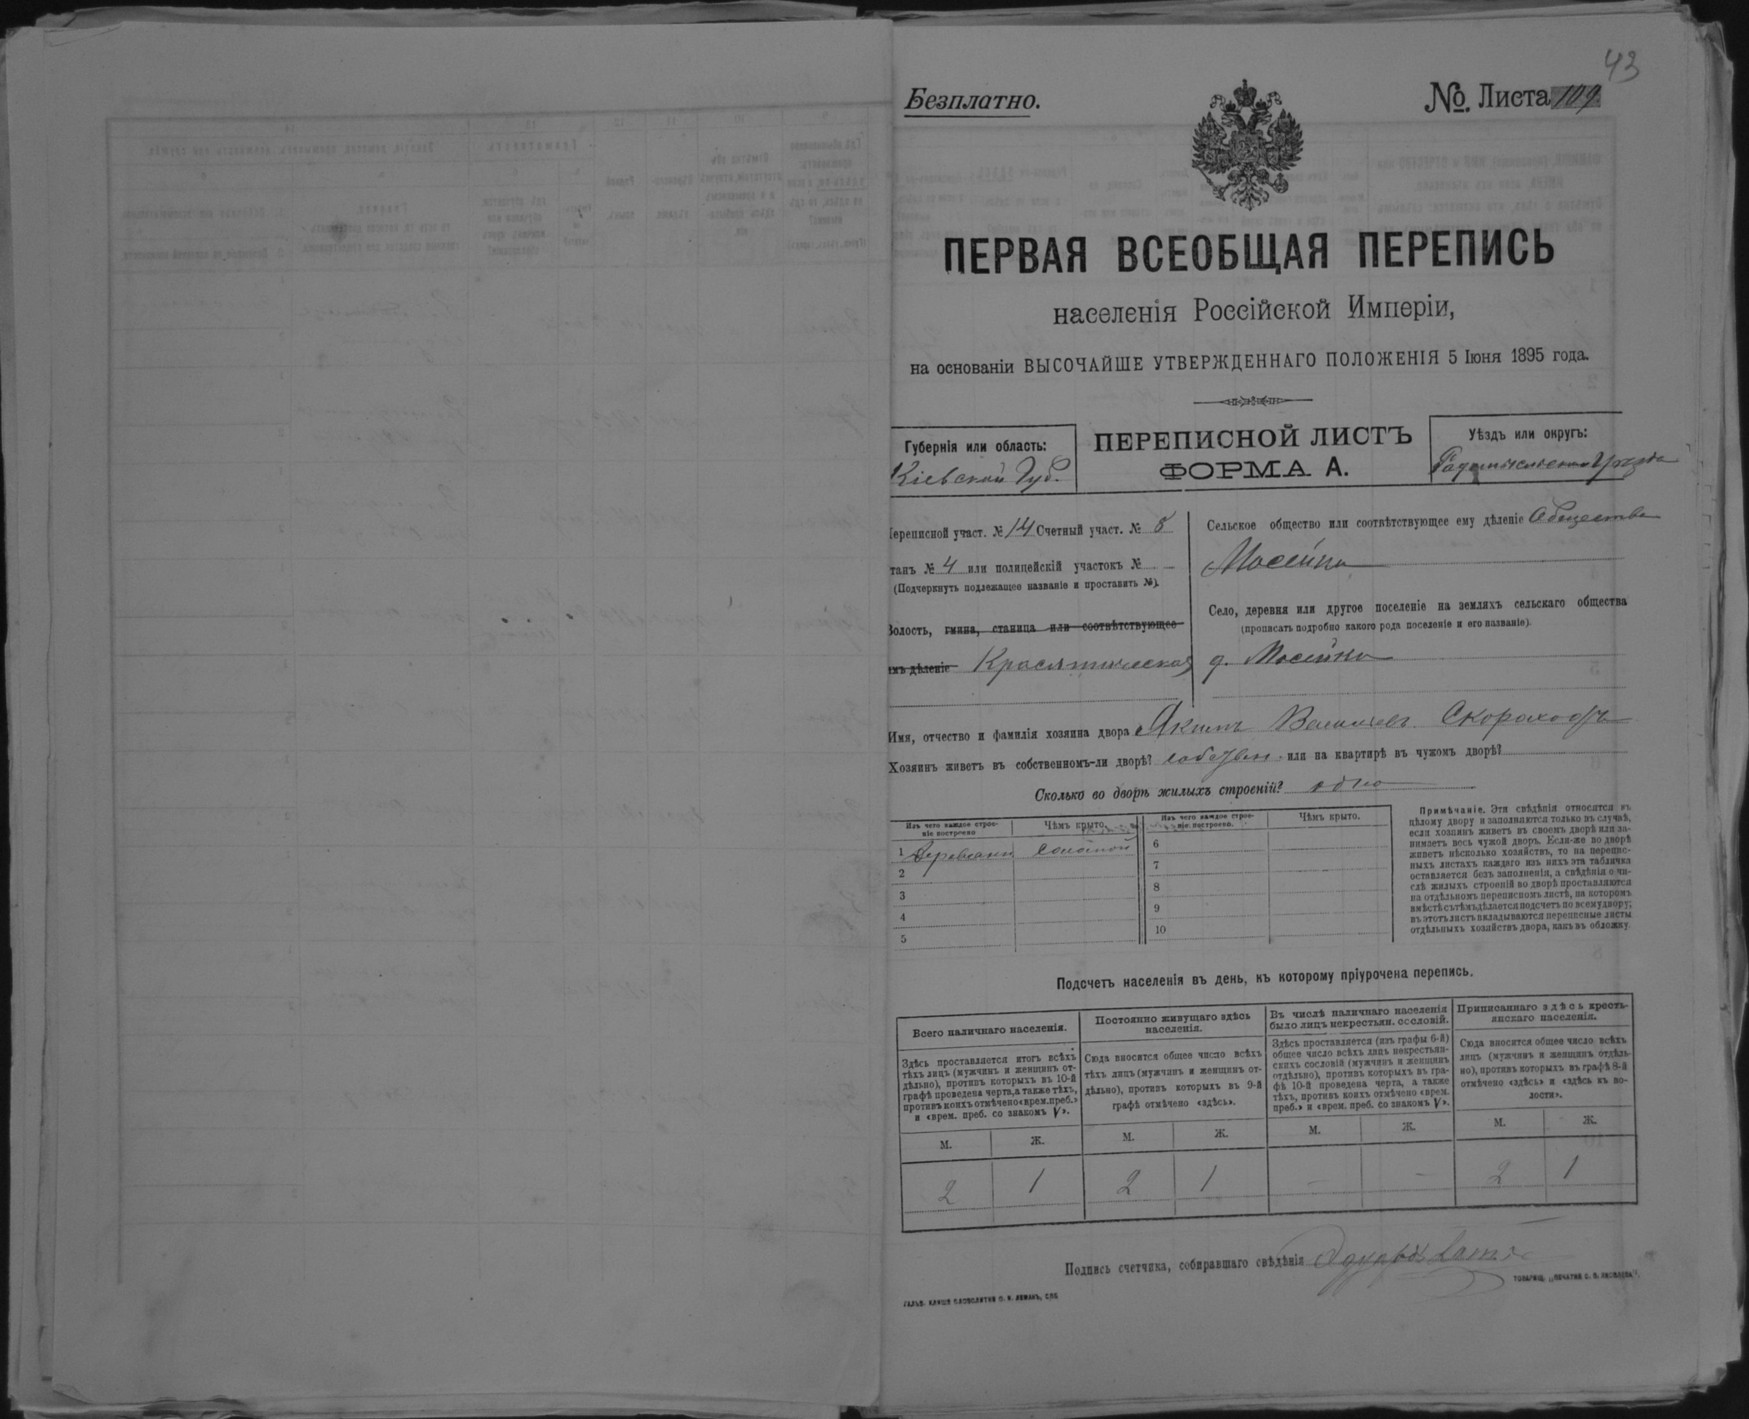 43
Безплатно.
№. Листа 109
ПЕРВАЯ ВСЕОБЩАЯ ПЕРЕПИСЬ
населенія Россійской Имперіи,
на основаніи ВЫСОЧАЙШЕ УТВЕРЖДЕННАГО ПОЛОЖЕНІЯ 5 Іюня 1895 года.
Губернія или область:
Кіевской Губ.
ПЕРЕПИСНОЙ ЛИСТЪ
ФОРМА А.
Уѣздъ или округъ:
Радомысльскаго Уѣзда
Переписной участ. № 14 Счетный участ. № 8
танъ № 4 или полицейскій участокъ № —
(Подчеркнуть подлежащее названіе и проставить №).
Волость, гмина, станица или соотвѣтствующее
имъ дѣленіе Красятическая
Сельское общество или соотвѣтствующее ему дѣленіе Общества
Мосейки
Село, деревня или другое поселеніе на земляхъ сельскаго общества
(прописать подробно какого рода поселеніе и его названіе).
д. Мосейки
Имя, отчество и фамилія хозяина двора Якимъ Васильевъ Скороходъ
Хозяинъ живетъ въ собственномъ-ли дворѣ? собствен. или на квартирѣ въ чужомъ дворѣ?
Сколько во дворѣ жилыхъ строеній? одно
Изъ чего каждое строе-
ніе построено
Чѣмъ крыто.
1 Деревянн Соломой
2
3
4
5
Изъ чего каждое строе-
ніе построено.
Чѣмъ крыто.
6
7
8
9
10
Примѣчаніе. Эти свѣдѣнія относятся къ
цѣлому двору и заполняются только въ случаѣ,
если хозяинъ живетъ въ своемъ дворѣ или за-
нимаетъ весь чужой дворъ. Если-же во дворѣ
живетъ нѣсколько хозяйствъ, то на перепис-
ныхъ листахъ каждаго изъ нихъ эта табличка
оставляется безъ заполненія, а свѣдѣнія о чи-
слѣ жилыхъ строеній во дворѣ проставляются
на отдѣльномъ переписномъ листѣ, на которомъ
вмѣстѣ съ тѣмъ дѣлается подсчетъ по всему двору;
въ этотъ листъ вкладываются переписные листы
отдѣльныхъ хозяйствъ двора, какъ въ обложку.
Подсчетъ населенія въ день, къ которому пріурочена перепись.
Всего наличнаго населенія.
Здѣсь проставляется итогъ всѣхъ
тѣхъ лицъ (мужчинъ и женщинъ от-
дѣльно), противъ которыхъ въ 10-й
графѣ проведена черта, а также тѣхъ,
противъ коихъ отмѣчено «врем. преб.»
и «врем. преб. со знакомъ V».
М. Ж.
2 1
Постоянно живущаго здѣсь
населенія.
Сюда вносится общее число всѣхъ
тѣхъ лицъ (мужчинъ и женщинъ от-
дѣльно), противъ которыхъ въ 9-й
графѣ отмѣчено «здѣсь».
М. Ж.
2 1
Въ числѣ наличнаго населенія
было лицъ некрестьян. сословій.
Здѣсь проставляется (изъ графы 6-й)
общее число всѣхъ лицъ некрестьян-
скихъ сословій (мужчинъ и женщинъ
отдѣльно), противъ которыхъ въ гра-
фѣ 10-й проведена черта, а также
тѣхъ, противъ коихъ отмѣчено «врем.
преб.» и «врем. преб. со знакомъ V».
М. Ж.
– –
Приписаннаго здѣсь кресть-
янскаго населенія.
Сюда вносится общее число всѣхъ
лицъ (мужчинъ и женщинъ отдѣль-
но), противъ которыхъ въ графѣ 8-й
отмѣчено «здѣсь» и «здѣсь въ во-
лости».
М. Ж.
2 1
Подпись счетчика, собиравшаго свѣдѣнія